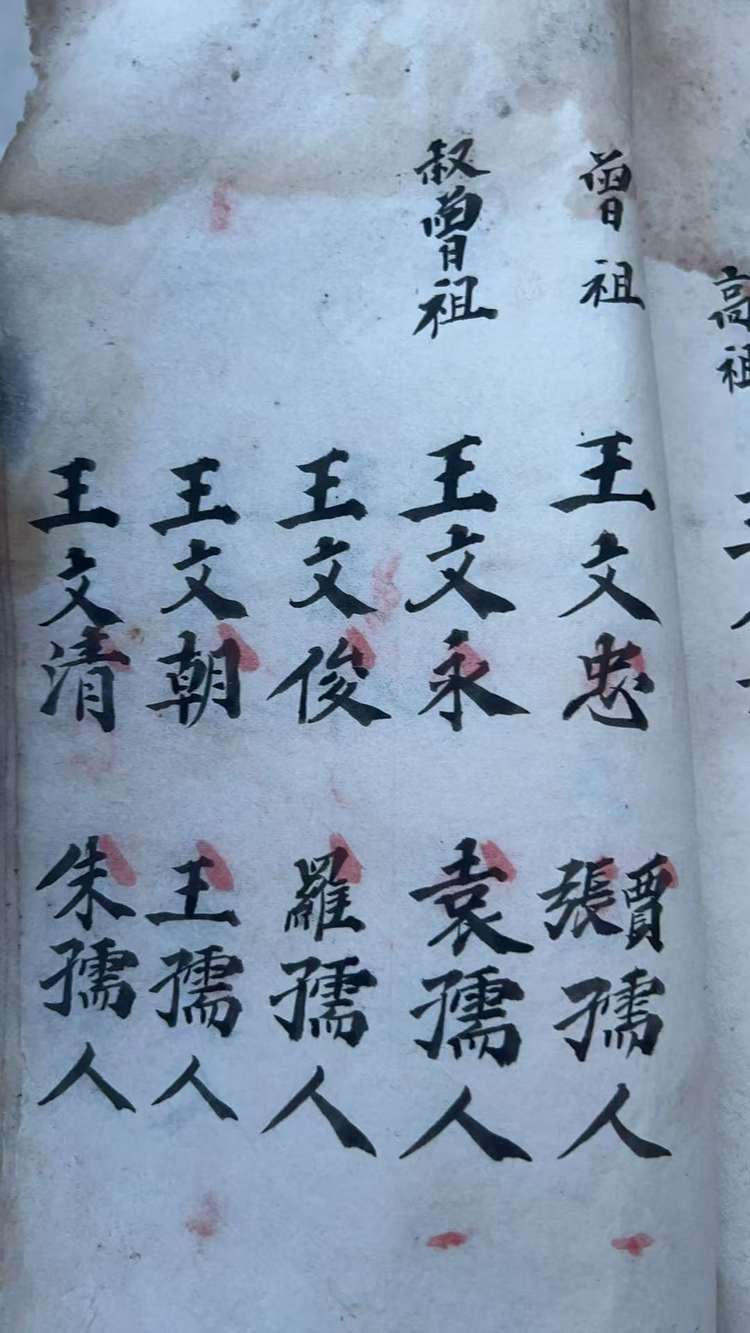 高祖
曾祖 王文忠 賈張孺人
叔曾祖 王文永 袁孺人
王文俊 羅孺人
王文朝 王孺人
王文清 朱孺人